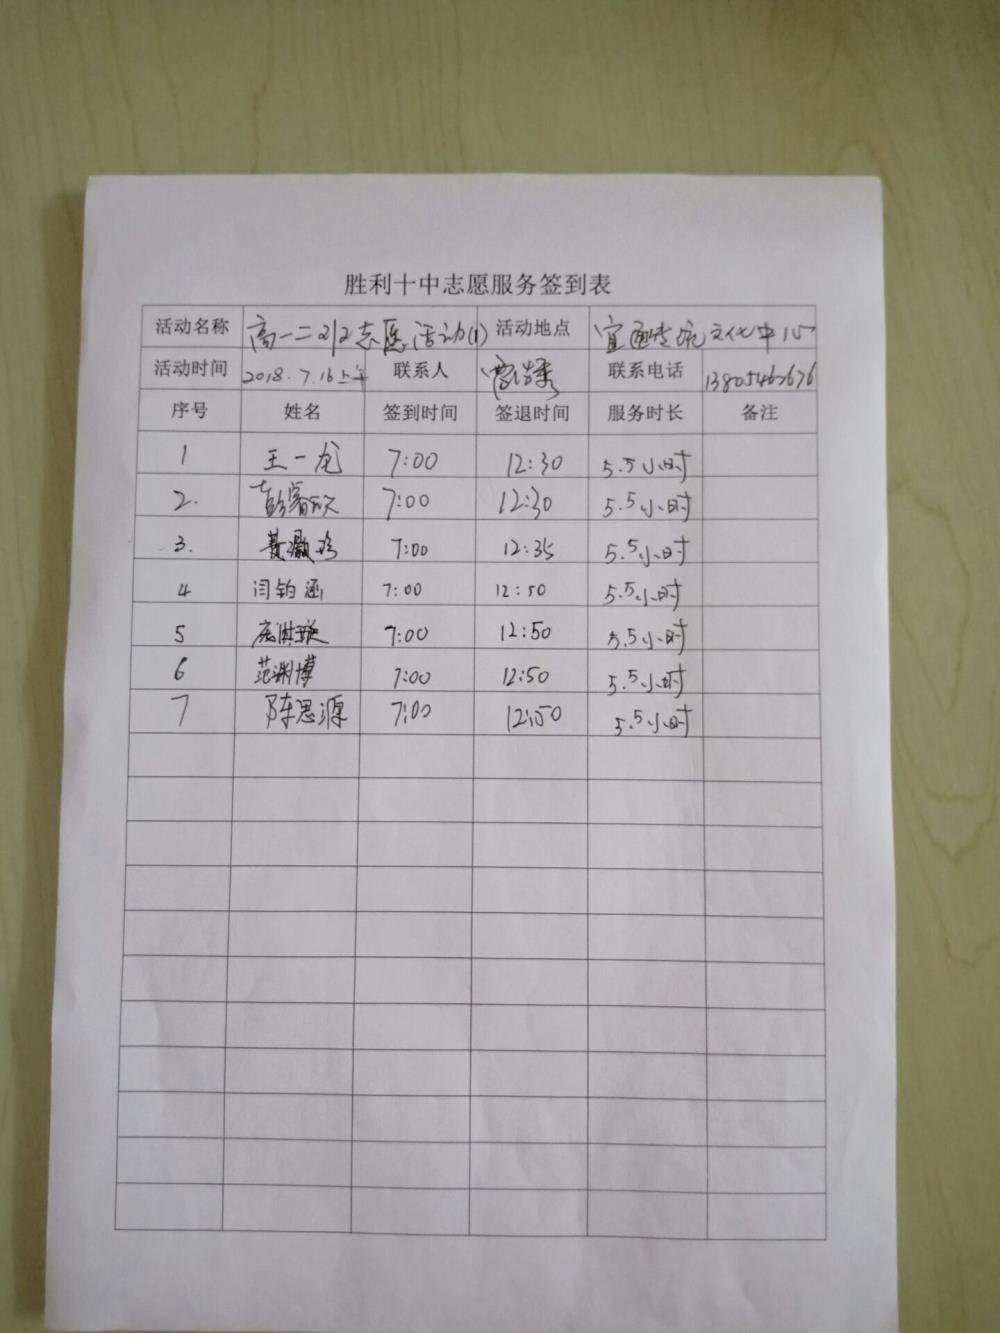 胜利十中志愿服务签到表
活动名称 高一二 志愿活动(1) 活动地点 文化中心
活动时间 2018.7.16上午 联系人 联系电话 13805462676
序号 姓名 签到时间 签退时间 服务时长 备注
1 王一龙 7:00 12:30 5.5小时
2. 7:00 12:30 5.5小时
3. 7:00 12:35 5.5小时
4 闫钧涵 7:00 12:50 5.5小时
5 7:00 12:50 5.5小时
6 范渊博 7:00 12:50 5.5小时
7 陈思源 7:00 12:50 5.5小时